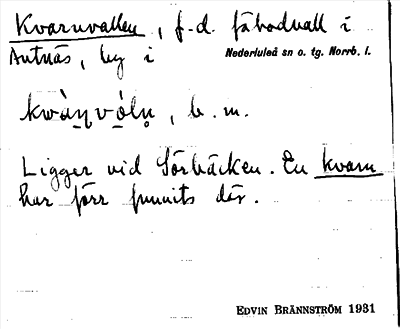 Kvarnvallen, f.d. fäbodvall i
Antnäs, by i Nederluleå sn o. tg. Norrb. l.
kwàṇvó̱lṇ, b. m.
Ligger vid Sörbäcken. En kvarn
har förr funnits där.
EDVIN BRÄNNSTRÖM 1931